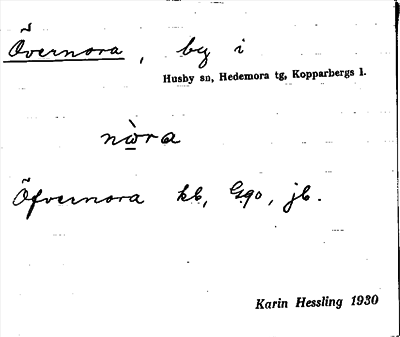 Övernora, by i
Husby sn, Hedemora tg, Kopparbergs l.
nòra
Öfvernora kb, Ggo, jb.
Karin Hessling 1930